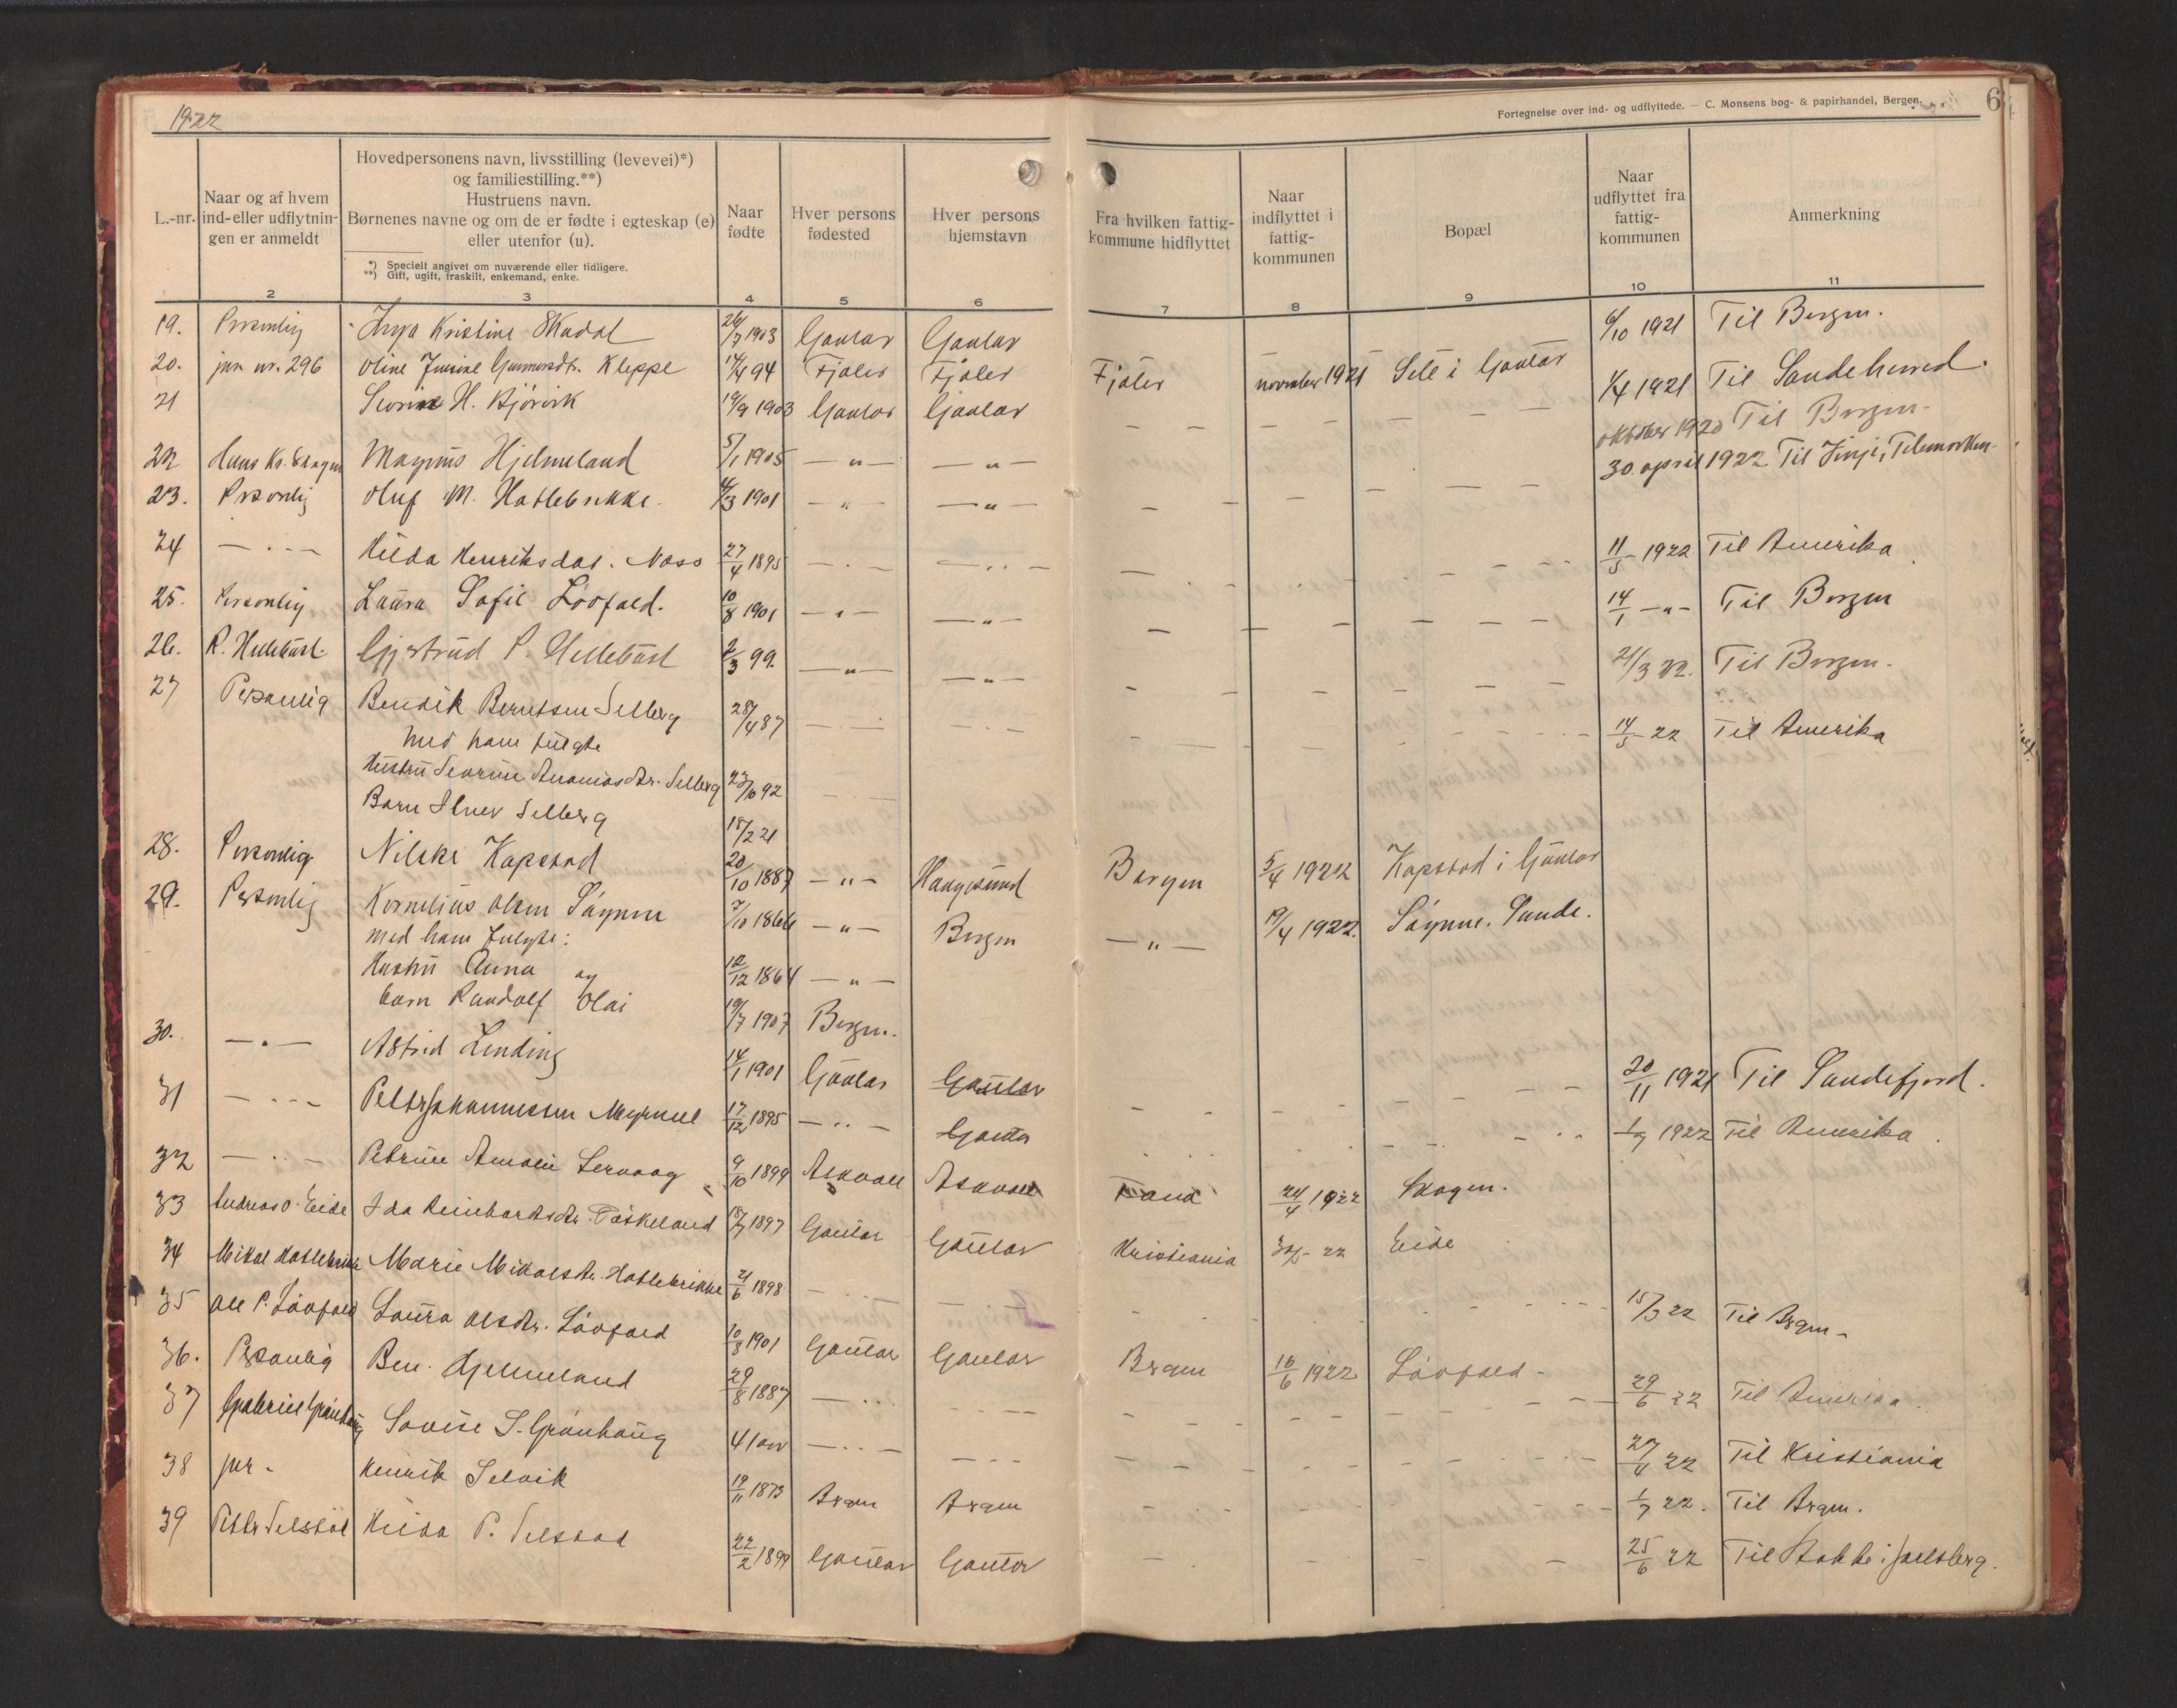 1922
Fortegnelse over ind- og udflyttede. — C. Monsens bog- & papirhandel, Bergen.
6
L.-nr.
Naar og af hvem
ind-eller udflytnin-
gen er anmeldt
Hovedpersonens navn, livsstilling (levevei)*)
og familiestilling.**)
Hustruens navn.
Børnenes navne og om de er fødte i egteskap (e)
eller utenfor (u).
*) Specielt angivet om nuværende eller tidligere.
**) Gift, ugift, fraskilt, enkemand, enke.
Naar
fødte
Hver persons
fødested
Hver persons
hjemstavn
Fra hvilken fattig-
kommune hidflyttet
Naar
indflyttet i
fattig-
kommunen
Bopæl
Naar
udflyttet fra
fattig-
kommunen
Anmerkning
2 3 4 5 6 7 8 9 10 11
19. Personlig Inga Kristine Skadal 26/7 1903 Gaular Gaular 6/10 1921 Til Bergen.
20. jnr. nr. 296 Oline Gunnarsdtr. Kleppe 14/4 94 Fjaler Fjaler Fjaler november 1921 Sele i Gaular 1/4 1921 Til Sandeherred.
21 H. Bjørvik 19/9 1903 Gaular Gaular — — — — — — oktober 1920 Til Bergen.
22 Hans Kr. Skagen Magnus Hjelmeland 5/1 1905 — " — — " — 30. april 1922 Til Telemarken.
23. Personlig Oluf M. Hatlebrekke. 4/3 1901 — " — — " — — — — — — —
24 — " — Hilda Henriksdat. Næss 27/4 1895 — " — — " — — 11/5 1922 Til Amerika
25. Personlig Laura Sofie Løvfald. 10/8 1901 — " — — " — — — — — — — 14/1 — " — Til Bergen
26. R. Hellebust Gjertrud P. Hellebust 2/3 99. — " — — " — — — — — — — 21/3 22. Til Bergen.
27 Personlig Bendik Berntsen Selberg 28/4 87 — — — — — — — — 14/5 22 Til Amerika
med ham fulgte
Hustru Severine Ananiasdtr. Selberg 23/10 92 — —
Barn Selberg 18/2 21
28. Personlig Kapstad 20/10 1887 — " — Haugesund Bergen 5/4 1922 Kapstad i Gaular
29. Personlig Kornelius Olsen 7/10 1866 — " — Bergen — " — 19/4 1922. Sande.
med ham fulgte:
Hustru Anna og 12/12 1864 — " —
barn Randolf Olai 19/7 1907 Bergen.
30. — " — Astrid Lending 14/1 1901 Gaular Gaular — — — — — — 20/11 1921 Til Sandefjord.
31 — " — Petter Johannessen Myrmel 17/12 1895 — " — Gaular 1922 Til Amerika.
32 — " — Petrine Amalie Lervaag 9/10 1899 Askvoll Askvoll Fana 24/4 1922 Skagen.
33 Andreas O. Eide Ida Reinhardsdtr. 18/7 1897 Gaular Gaular Kristiania 22 Eide
34 Mikal Hatlebrekke Marie Mikalsdtr. Hatlebrekke 21/6 1898 — " — — " — 15/3 22 Til Bergen
35 Ole P. Løvfald Laura Olsdtr. Løvfald 10/8 1901 Gaular Gaular Bergen 16/6 1922 Løvfald
36. Personlig Ben. Hjelmeland 29/8 1887 — " — — " — — — — — — — 29/6 22 Til Amerika.
37 Gabriel Grønhaug Lovise S. Grønhaug — " — — " — — — — — — — 27/4 22 Til Kristiania
38 Henrik Selvik 19/11 1873 Bergen Bergen — — — — — 1/7 22. Til Bergen.
39 Hilda P. 22/2 1899 Gaular Gaular — — — — 25/6 22 Til Stokke i Jarlsberg.